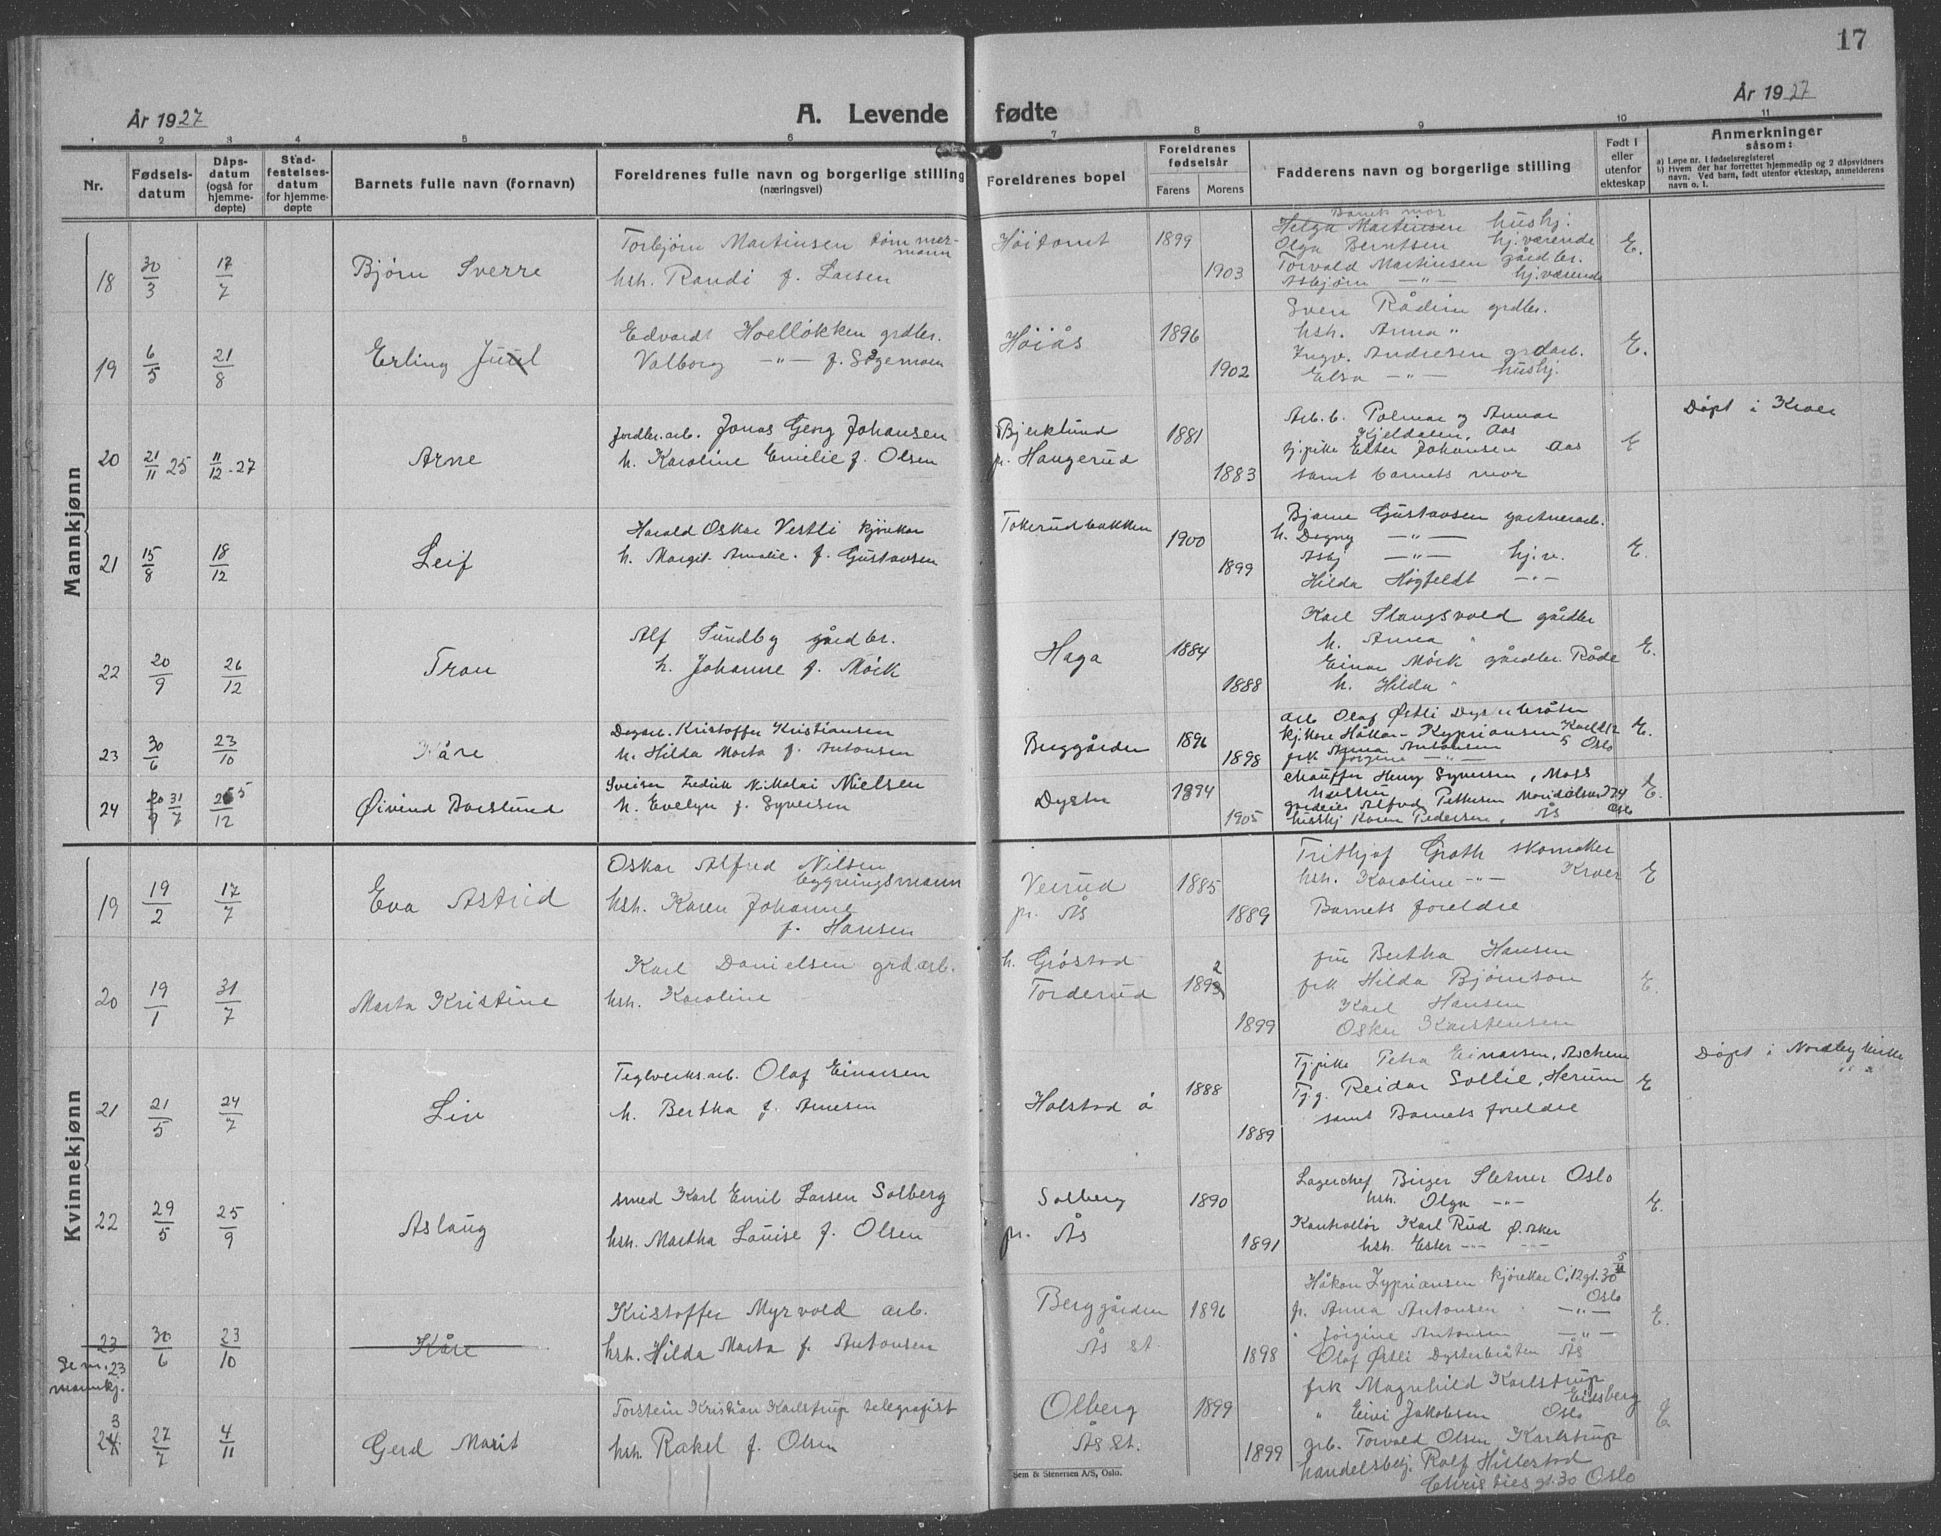 17
År 1927
A. Levende fødte
År 1927
1 2 3 4 5 6 7 8 9 10 11
Nr.
Fødsels-
datum
Dåps-
datum
(også for
hjemme-
døpte)
Stad-
festelses-
datum
for hjemme-
døpte
Barnets fulle navn (fornavn)
Foreldrenes fulle navn og borgerlige stilling
(næringsvei)
Foreldrenes bopel
Foreldrenes
fødselsår
Farens Morens
Fadderens navn og borgerlige stilling
Født i
eller
utenfor
ekteskap
Anmerkninger
såsom:
a) Løpe nr. i fødselsregisteret
b) Hvem der har forrettet hjemmedåp og 2 dåpsvidners
navn. Ved barn, født utenfor ekteskap, anmelderens
navn o. l.
Mannkjønn
18 30/3 17/7 Bjørn Sverre
Torbjørn Martinsen tømmer-
mann
hsh. Randi f. Larsen
Høitomt 1899 1903
Barnets mor
Helga Martinsen hushj.
Olga Berntsen hj.værende
Torvald Martinsen gårdbr.
Asbjørn —"— hj.værende
E.
19 6/5 21/8 Erling Juul
Edvardt Hoelløkken grdbr.
Valborg —"— f.
Høiås 1896 1902
Sven Rådim grdbr.
hsh. Anna "
Ingv. Andresen grdarb.
Elsa —"— hushj.
E.
20 21/11 25 11/12-27 Arne
Jordbr.arb. Jonas Georg Johansen
h. Karoline Emilie f. Olsen
Bjerklund
p. Haugerud
1881 1883
Arb. b. Palmar og Anna
Kjeldalen, Aas
tj.pike Ester Johansen Aas
samt barnets mor
E
Døpt i Kroer
21 15/8 18/12 Leif
Harald Oskar Vestli kjørekar
h. Margit Amalie f. Gustavsen
Tokerudbakken 1900 1899
Bjarne Gustavsen gartnerarb.
h. Dagny —"—
Asbj —"— hj.v.
Hilda Høgfeldt —"—
E.
22 20/9 26/12 Tron
Alf Sundby gårdbr.
h. Johanne f. Mørk
Haga 1884 1888
Karl Slangsvold gårdbr
h. Anna "
Einar Mørk gårdbr. Råde
h. Hilda "
E.
23 30/6 23/10 Kåre
Dagarb. Kristoffer Kristiansen
h. Hilda Marta f. Antonsen
Berggården 1896 1898
arb Olaf Østli Dysterbråten
kj.kare Håkon Kypriansen
frk Anna Antonsen 5 Oslo
frk Jørgine —"—
E.
24 31/7 25/12 Øivind Barslund
Sveiser Fredrik Nikolai Nielsen
h. Evelyn f. Syversen
Dyster 1894 1905
Chauffør Henry Syversen, Moss
Alfred Pettersen Maridalsv. 224
Oslo
husthj Karen Pedersen, Ås
E.
Kvinnekjønn
19 19/2 17/7 Eva Astrid
Oskar Alfred Nilsen
bygningsmann
hsh. Karen Johanne
f. Hansen
Veirud
pr. Ås
1885 1889
Frithjof Groth skomaker
hsh. Karoline —"— Kroer
Barnets foreldre
E
20 19/1 31/7 Marta Kristine
Karl Danielsen grdarb.
hsh. Karoline
h. Grøstad
Torderud
1892 1899
fru Bertha Hansen
frk Hilda Bjørnson
Karl Hansen
Oskar Karstensen
E.
21 21/5 24/7 Liv
Teglverks.arb. Olaf Einarsen
h. Bertha f. Arnesen
Holstad ø 1888 1889
Tj.pike Petra Einarsen, Aschem
Tj.g. Reidar Sollie, Herum
samt Barnets foreldre
E
Døpt i Nordby kirke
22 29/5 25/9 Aslaug
smed Karl Emil Larsen Solberg
hsh. Martha Louise f. Olsen
Solberg
pr. Ås
1890 1891
Lagerchef Birger Sletner Oslo
hsh. Olga —"—
Kontrollør Karl Rud Ø. Aker
hsh. Ester —"— —"—
E.
23 30/6 23/10 Kåre
Se nr. 23
mannkj.
Kristoffer Myrvold arb.
hsh. Hilda Marta f. Antonsen
Berggården
Ås st.
1896 1898
Håkon Zypriansen kjørekar C. 12 gt. 30
Oslo
fr. Anna Antonsen —"—
" Jørgine Antonsen —"—
Olaf Østli Dysterbråten Ås
E.
23 27/7 4/11 Gerd Marit
Torstein Kristian Karlstrup telegrafist
hsh. Rakel f. Olsen
Olberg
Ås St.
1899 1899
frk Magnhild Karlstrup
Eidsberg
" Eivi Jakobsen Oslo
arb. Torvald Olsen Karlstrup
handelsbetj. Rolf Hillestad
Christies gt. 30 Oslo
E
Sem & Stenersen A/S, Oslo.